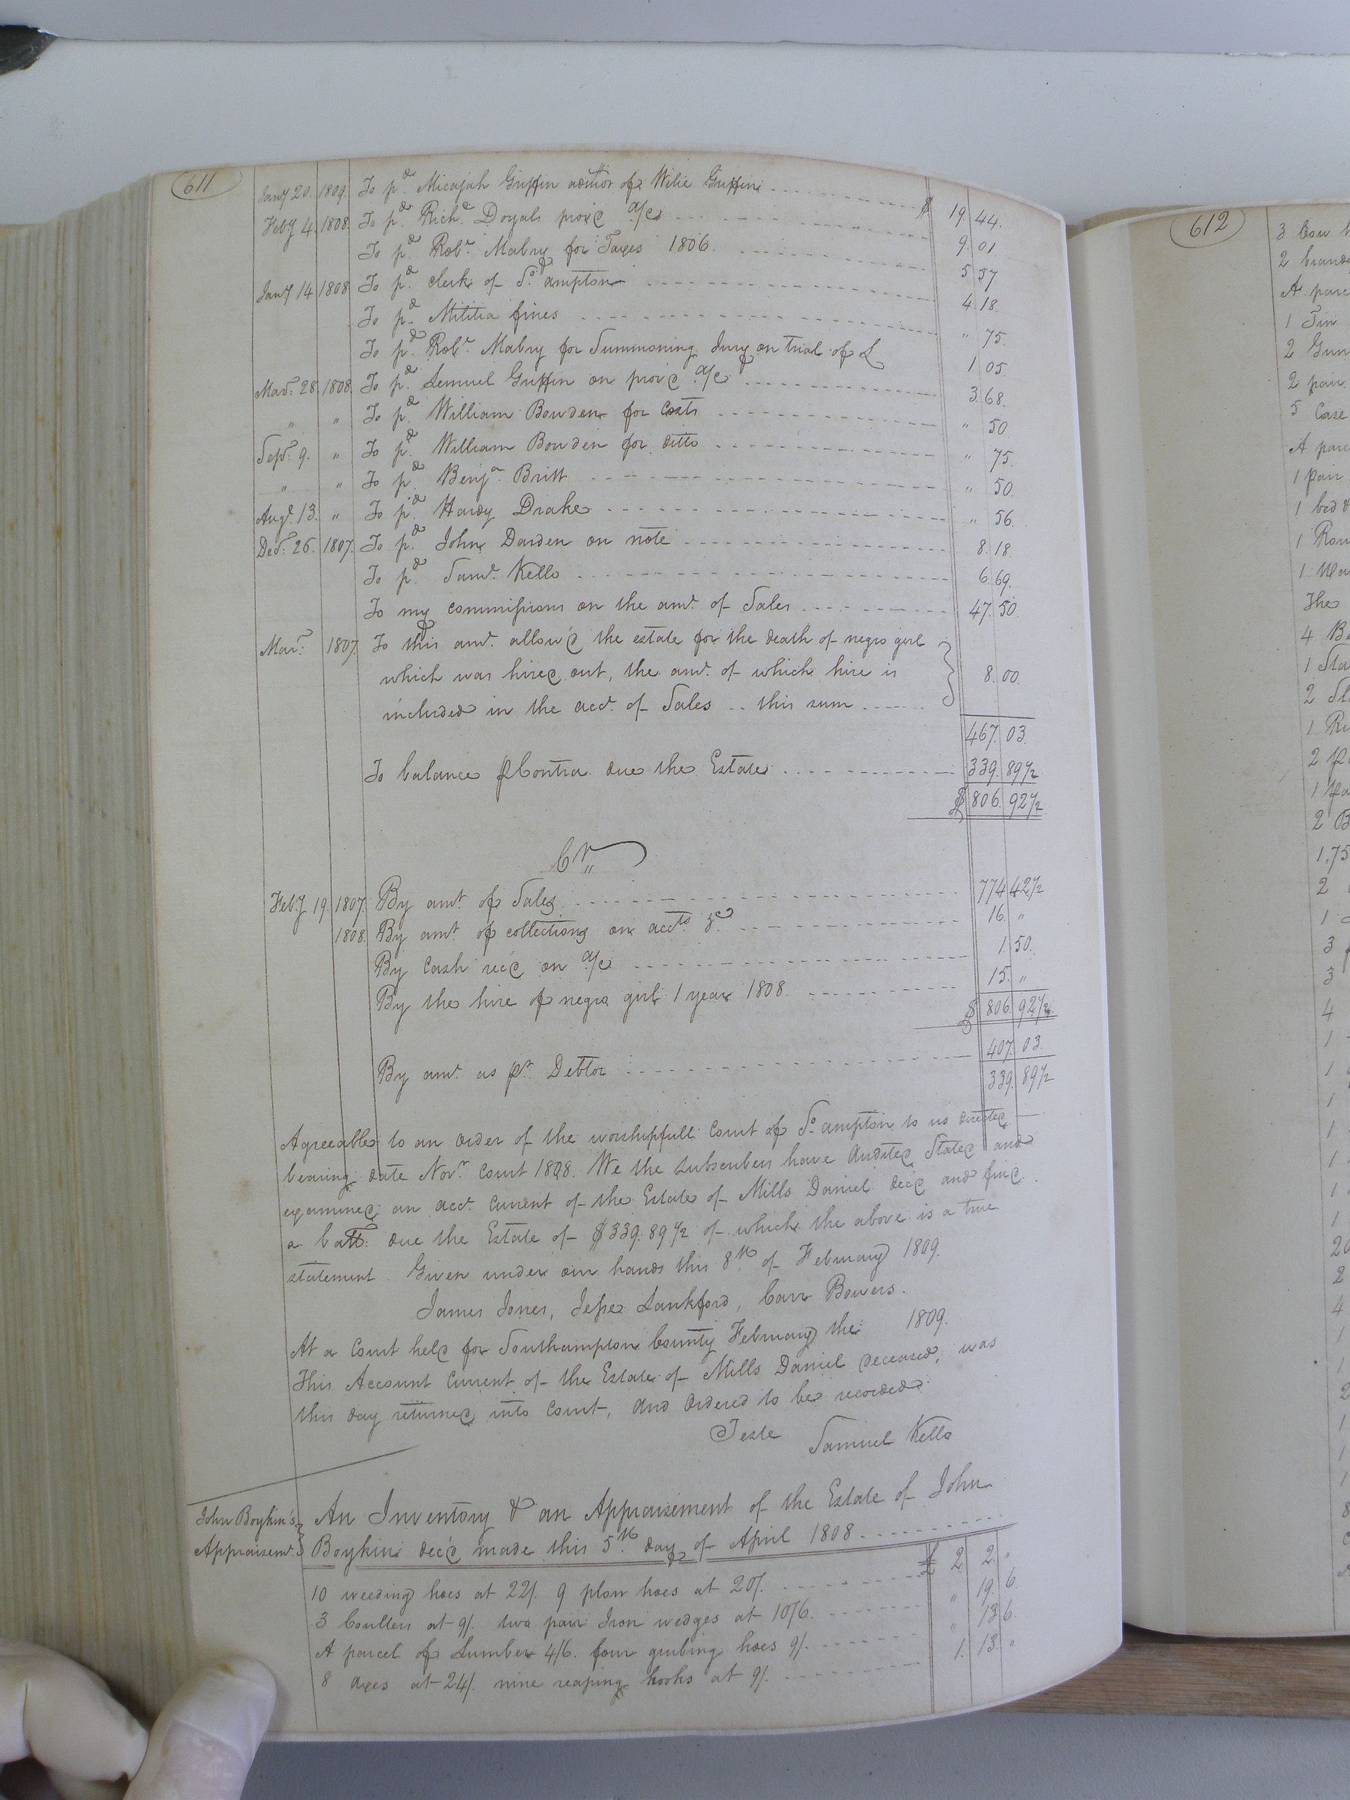 611
Jany 20. 1809. To pd. Micajah Griffin admor of Wilie Griffin $ 19.44.
Feby 4. 1808. To pd. Richd. Doyals prov'd a/c 9.01
To pd. Robt. Mabry for Taxes 1806. 5.57
Jany 14 1808 To pd. clerk of So.ampton 4.18.
To pd. Militia fines " 75.
To pd. Robt. Mabry for Summoning Jury on trial of L 1.05.
Mar: 28. 1808. To pd. Lemuel Griffin on prov'd a/c 3.68.
" " To pd. William Bowden for Costs " 50
Sepr. 9. " To pd. William Bowden for ditto " 75.
" " To pd. Benja. Britt " 50.
Augt. 13. " To pd. Hardy Drake " 56.
Dec: 26. 1807. To pd. John Darden on note 8.18.
To pd. Saml. Kello 6.69.
To my commissions on the amt. of Sales 47.50
Mar: 1807 To this amt. allow'd the estate for the death of negro girl
which was hired out, the amt. of which hire is 8.00.
included in the acct. of Sales .. this sum
467.03.
To balance pContra due the Estate 339.89 1/2
$ 806.92 1/2
Cr.
Feby 19. 1807. By amt. of Sales 774.42 1/2
1808. By amt. of collections on accts. &c 16. "
By Cash rec'd on a/c 1.50.
By the hire of negro girl 1 year 1808. 15. "
$ 806.92 1/2
By amt. as pr. Debtor 407.03.
339.89 1/2
Agreeable to an order of the worshipfull Court of So.ampton to us directed
bearing date Novr. Court 1808. We the subscribers have Audited Stated and
examined an acct. current of the Estate of Mills Daniel dec'd and find
a ball: due the Estate of $339.89 1/2 of which the above is a true
statement. Given under our hands this 8th of February 1809.
James Jones, Jesse Lankford, Carr Bowers.
At a Court held for Southampton County February the 1809.
This Account Current of the Estate of Mills Daniel deceased, was
this day returned into Court, and Ordered to be recorded.
Teste Samuel Kello
John Boykin's Appraisemt. }
An Inventory & an Appraisement of the Estate of John
Boykin dec'd made this 5th day of April 1808
10 weeding hoes at 22/. 9 plow hoes at 20/. £ 2 2. "
3 Coulters at 9/. two pair Iron wedges at 10/6. " 19. 6.
A parcel of Lumber 4/6. four grubing hoes 9/. " 13 6.
8 axes at 24/. nine reaping hooks at 9/. 1. 13. "
612
3 Cow
2 brand
A parce
1 Tin
2 Gun
2 pair
5 Case
A parc
1 pair
1 bed &
1
1
The
4
1
2
1
2
1
2
1.75
2
1
3
3
4
1